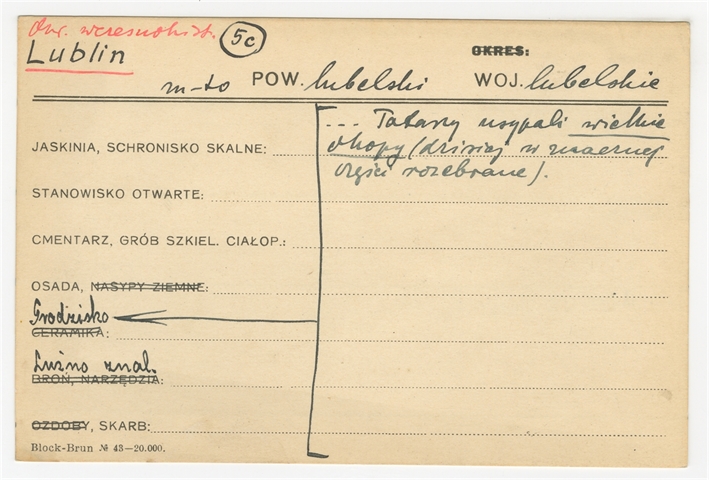 Okr. wczesnohist. 5c
Lublin OKRES:
m-to POW. lubelski WOJ. lubelskie
... Tatarzy usypali wielkie
JASKINIA, SCHRONISKO SKALNE: okopy (dzisiaj w znacznej
części rozebrane).
STANOWISKO OTWARTE:
CMENTARZ, GRÓB SZKIEL. CIAŁOP.:
OSADA, NASYPY ZIEMNE:
Grodzisko
CERAMIKA:
Luźno znal.
BROŃ, NARZĘDZIA:
OZDOBY, SKARB:
Block-Brun № 43—20.000.